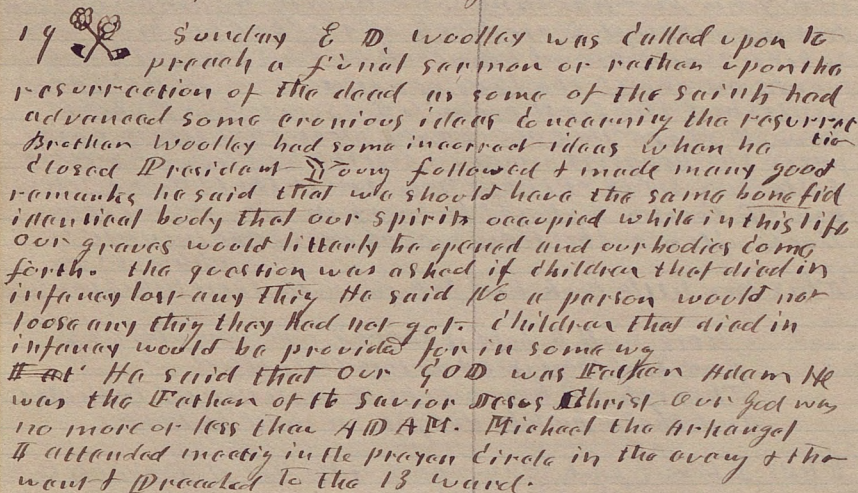 19 Sunday E D Woolley was Called upon to
preach a funeral sarmon or rather upon the
resurraction of the dead as some of the Saints had
advanced some eronious ideas Concerning the resurrec
tion
Brother Woolley had some incorrect ideas when he
Closed President Young followed & made many good
remarks he said that we should have the same bonefid
identical body that our spirits occupied while in this life
our graves would litterly be opened and our bodies come
forth. the question was asked if children that died in
infancy lost any thig He said No a person would not
loose any thig they Had not got. Children that died in
infancy would be provided for in some wy
He said that our GOD was Father Adam He
was the Father of the Savior Jesus Christ Our God was
no more or less than ADAM. Michael the Arkangel
I attended meetig in the prayer Circle in the eveng & then
went & Preached to the 13 ward.